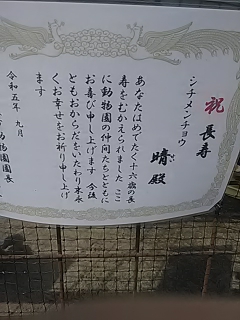 祝 長寿
シチメンチョウ
晴 殿
あなたはめでたく十六歳の長
寿をむかえられました ここ
に動物園の仲間たちとともに
お喜び申し上げます 今後
ともおからだをいたわり末永
くお幸せをお祈り申し上げ
ます
令和五年 九月
動物園園長